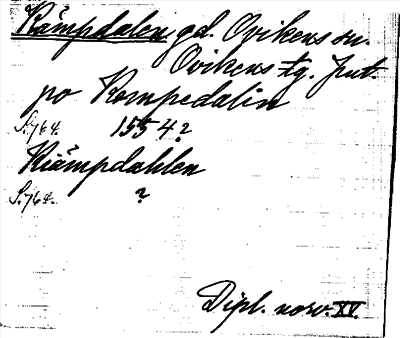 Kämpdalen gd. Ovikens sn.
Ovikens tg. Jmt.
po Kompedalin
S. 764. 1554?
Kiämpdahlen
S. 764. ?
Dipl. norv. XV.